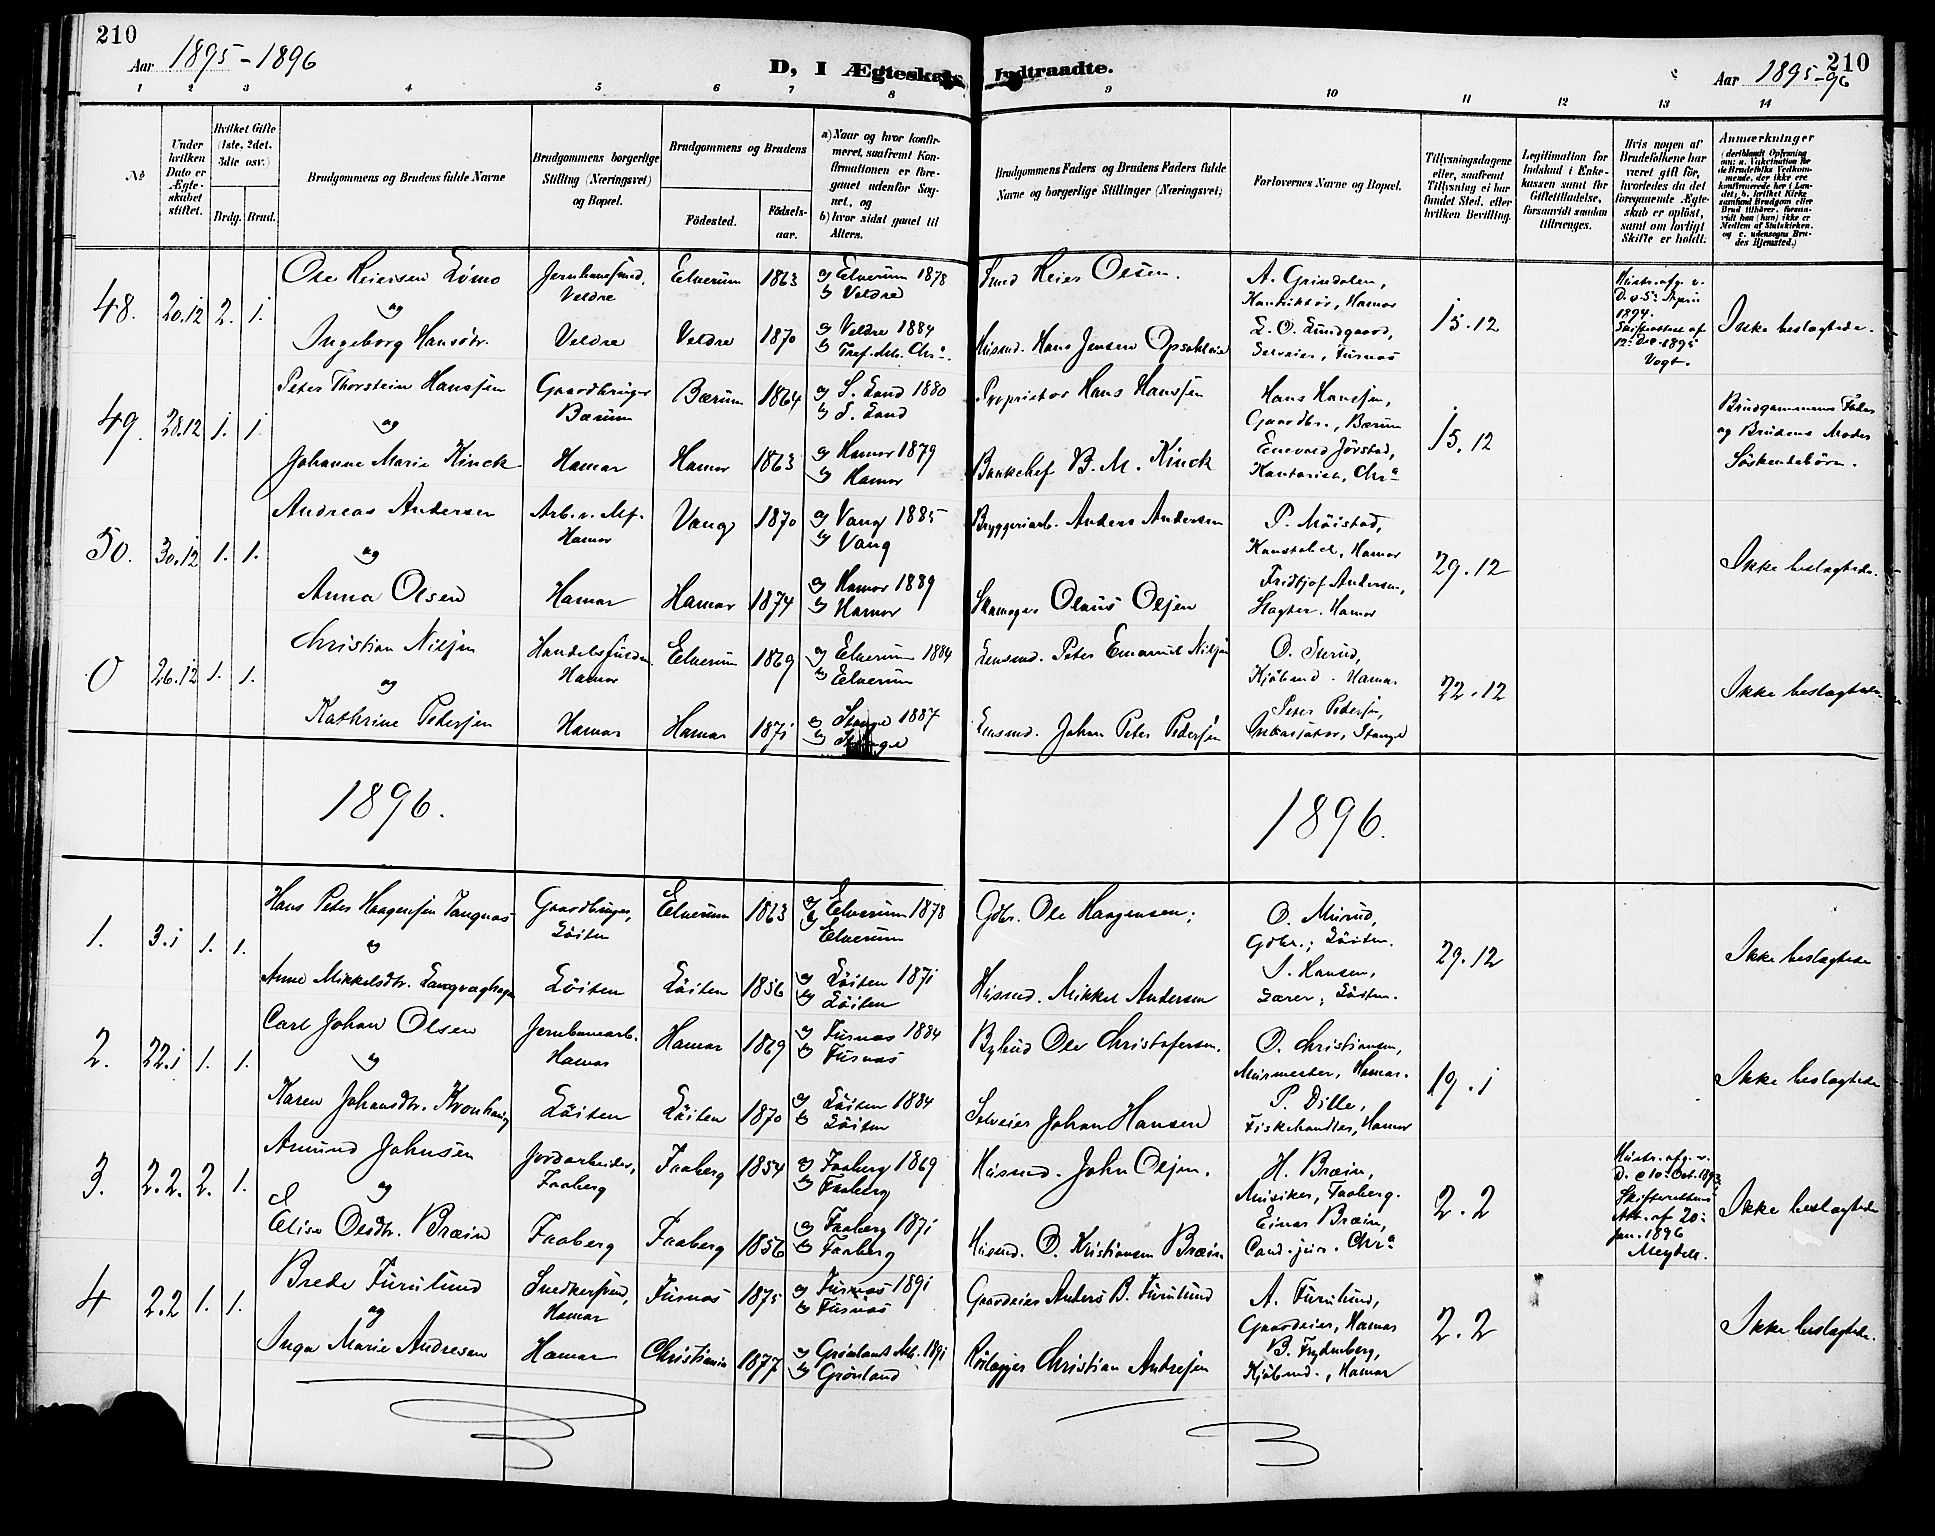 210
Aar 1895-1896
D, I Ægteskab Indtraadte.
Aar 1895-96
210
1 2 3 4 5 6 7 8 9 10 11 12 13 14
№
Under hvilken Dato er Ægteskabet stiftet.
Hvilket Gifte (1ste, 2det, 3die osv.)
Brdg. Brud.
Brudgommens og Brudens fulde Navne
Brudgommens borgerlige Stilling (Næringsvei) og Bopæl.
Brudgommens og Brudens
Fødested.
Fødselsaar.
a) Naar og hvor konfirmeret, saafremt Konfirmationen er foregaaet udenfor Sognet, og
b) hvor sidst gaaet til Alters.
Brudgommens Faders og Brudens Faders fulde Navne og borgerlige Stillinger (Næringsvei)
Forlovernes Navne og Bopæl.
Tillysningsdagene eller, saafremt Tillysning ei har fundet Sted, efter hvilken Bevilling.
Legitimation for Indskud i Enkekassen samt for Giftetilladelse, forsaavidt saadan tiltrænges.
Hvis nogen af Brudefolkene har været gift før, hvorledes da det foregaaende Ægteskab er opløst, samt om lovligt Skifte er holdt.
Anmærkninger
48. 20.12 2. 1.
Ole Heiersen Lømo
og
Ingeborg Hansdtr.
Veldre
Veldre
Elverum 1863
Veldre 1870
a) Elverum 1878
b) Veldre
a) Veldre 1884
Smed Heier Olsen.
Husmd. Hans Jensen
A. Grindalen,
Hamar
Selveier, Furnæs
15.12
1894.
Vogt.
Ikke beslægtede.
49. 28.12 1. 1
Peter Thorstein Hanssen
og
Johanne Marie Kinck
Gaardbruger
Bærum
Hamar
Bærum 1864
Hamar 1863
a) S. Land 1880
b) S. Land
a) Hamar 1879
b) Hamar
Proprietær Hans Hanssen
Bankchef B. M. Kinck
Hans Hanssen,
Gaardbr., Bærum
Enevold Jørstad,
Kontorist, Chr.a
15.12
Brudgommens Fader
og Brudens Moder
Søskendebørn.
50. 30.12 1. 1.
Andreas Andersen
og
Anna Olsen
Hamar
Hamar
Vang 1870
Hamar 1874
a) Vang 1885
b) Vang
a) Hamar 1889
b) Hamar
Bryggeriarb. Anders Andersen
Skomager Olaus Olsen
P. Möistad,
Konstabel, Hamar
Fridtjof Andersen,
Slagter. Hamar
29.12
Ikke beslægtede.
0 26.12 1. 1.
Christian Nilsen
og
Kathrine Pedersen
Hamar
Hamar
Elverum 1869
Hamar 1871
a) Elverum 1884
b) Elverum
a) Stange 1887
b) Stange
Peter Emanuel Nilsen
Johan Peter Pedersen
Kjøbmd. Hamar
Peter Pedersen,
Inkassator, Stange
22.12
Ikke beslægtede.
1896.
1896.
1. 3.1 1. 1.
Hans Peter Haagensen Tangnæs
og
Anne Mikkelsdtr.
Gaardbruger,
Löiten
Löiten
Elverum 1863
Löiten 1856
a) Elverum 1878
b) Elverum
a) Löiten 1871
b) Löiten
Gdbr. Ole Haagensen;
Husmd. Mikkel Andersen
O. Mürud,
Gdbr.; Löiten.
S. Hansen,
Lærer; Löiten.
29.12
Ikke beslægtede
2. 22.1 1. 1.
Carl Johan Olsen
og
Karen Johansdtr. Kronhaug
Jernbanearb.
Hamar
Löiten
Hamar 1869
Löiten 1870
a) Furnæs 1884
b) Furnæs
a) Löiten 1884
b) Löiten
Ole Christofersen.
Selveier Johan Hansen
O. Christiansen,
Murmester, Hamar.
P. Dille,
Fiskehandler, Hamar
19.1
Ikke beslægtede
3. 2.2. 2. 1.
Amund Johnsen
og
Elise Olsdtr. Bræin
Jordarbeider,
Faaberg
Faaberg
Faaberg 1854
Faaberg 1856
a) Faaberg 1869
b) Faaberg
a) Faaberg 1871
b) Faaberg
Husmd. John Olsen.
Husmd. O. Kristiansen Bræin
H. Bræin,
Musiker, Faaberg.
Einar Bræin,
Cand. jur. Chr.a
2.2
Hustr. afg. v.
D. d 10. Oct. 1893
Skifterettens
Att. af 20.
Jan. 1896
Meydell.
Ikke beslægtede
4 2.2 1. 1.
Brede Furulund
og
Inga Marie Andresen
Snedkersvend,
Hamar
Hamar
Furnæs 1875
Christiania 1877
a) Furnæs 1891
b) Furnæs
a) Grønlands Mh. 1891
b) Grønland
Gaardeier Anders B. Furulund
Rørlægger Christian Andresen
A. Furulund,
Gaardeier, Hamar
B. Frydenberg,
Kjøbmd., Hamar
2.2
Ikke beslægtede.